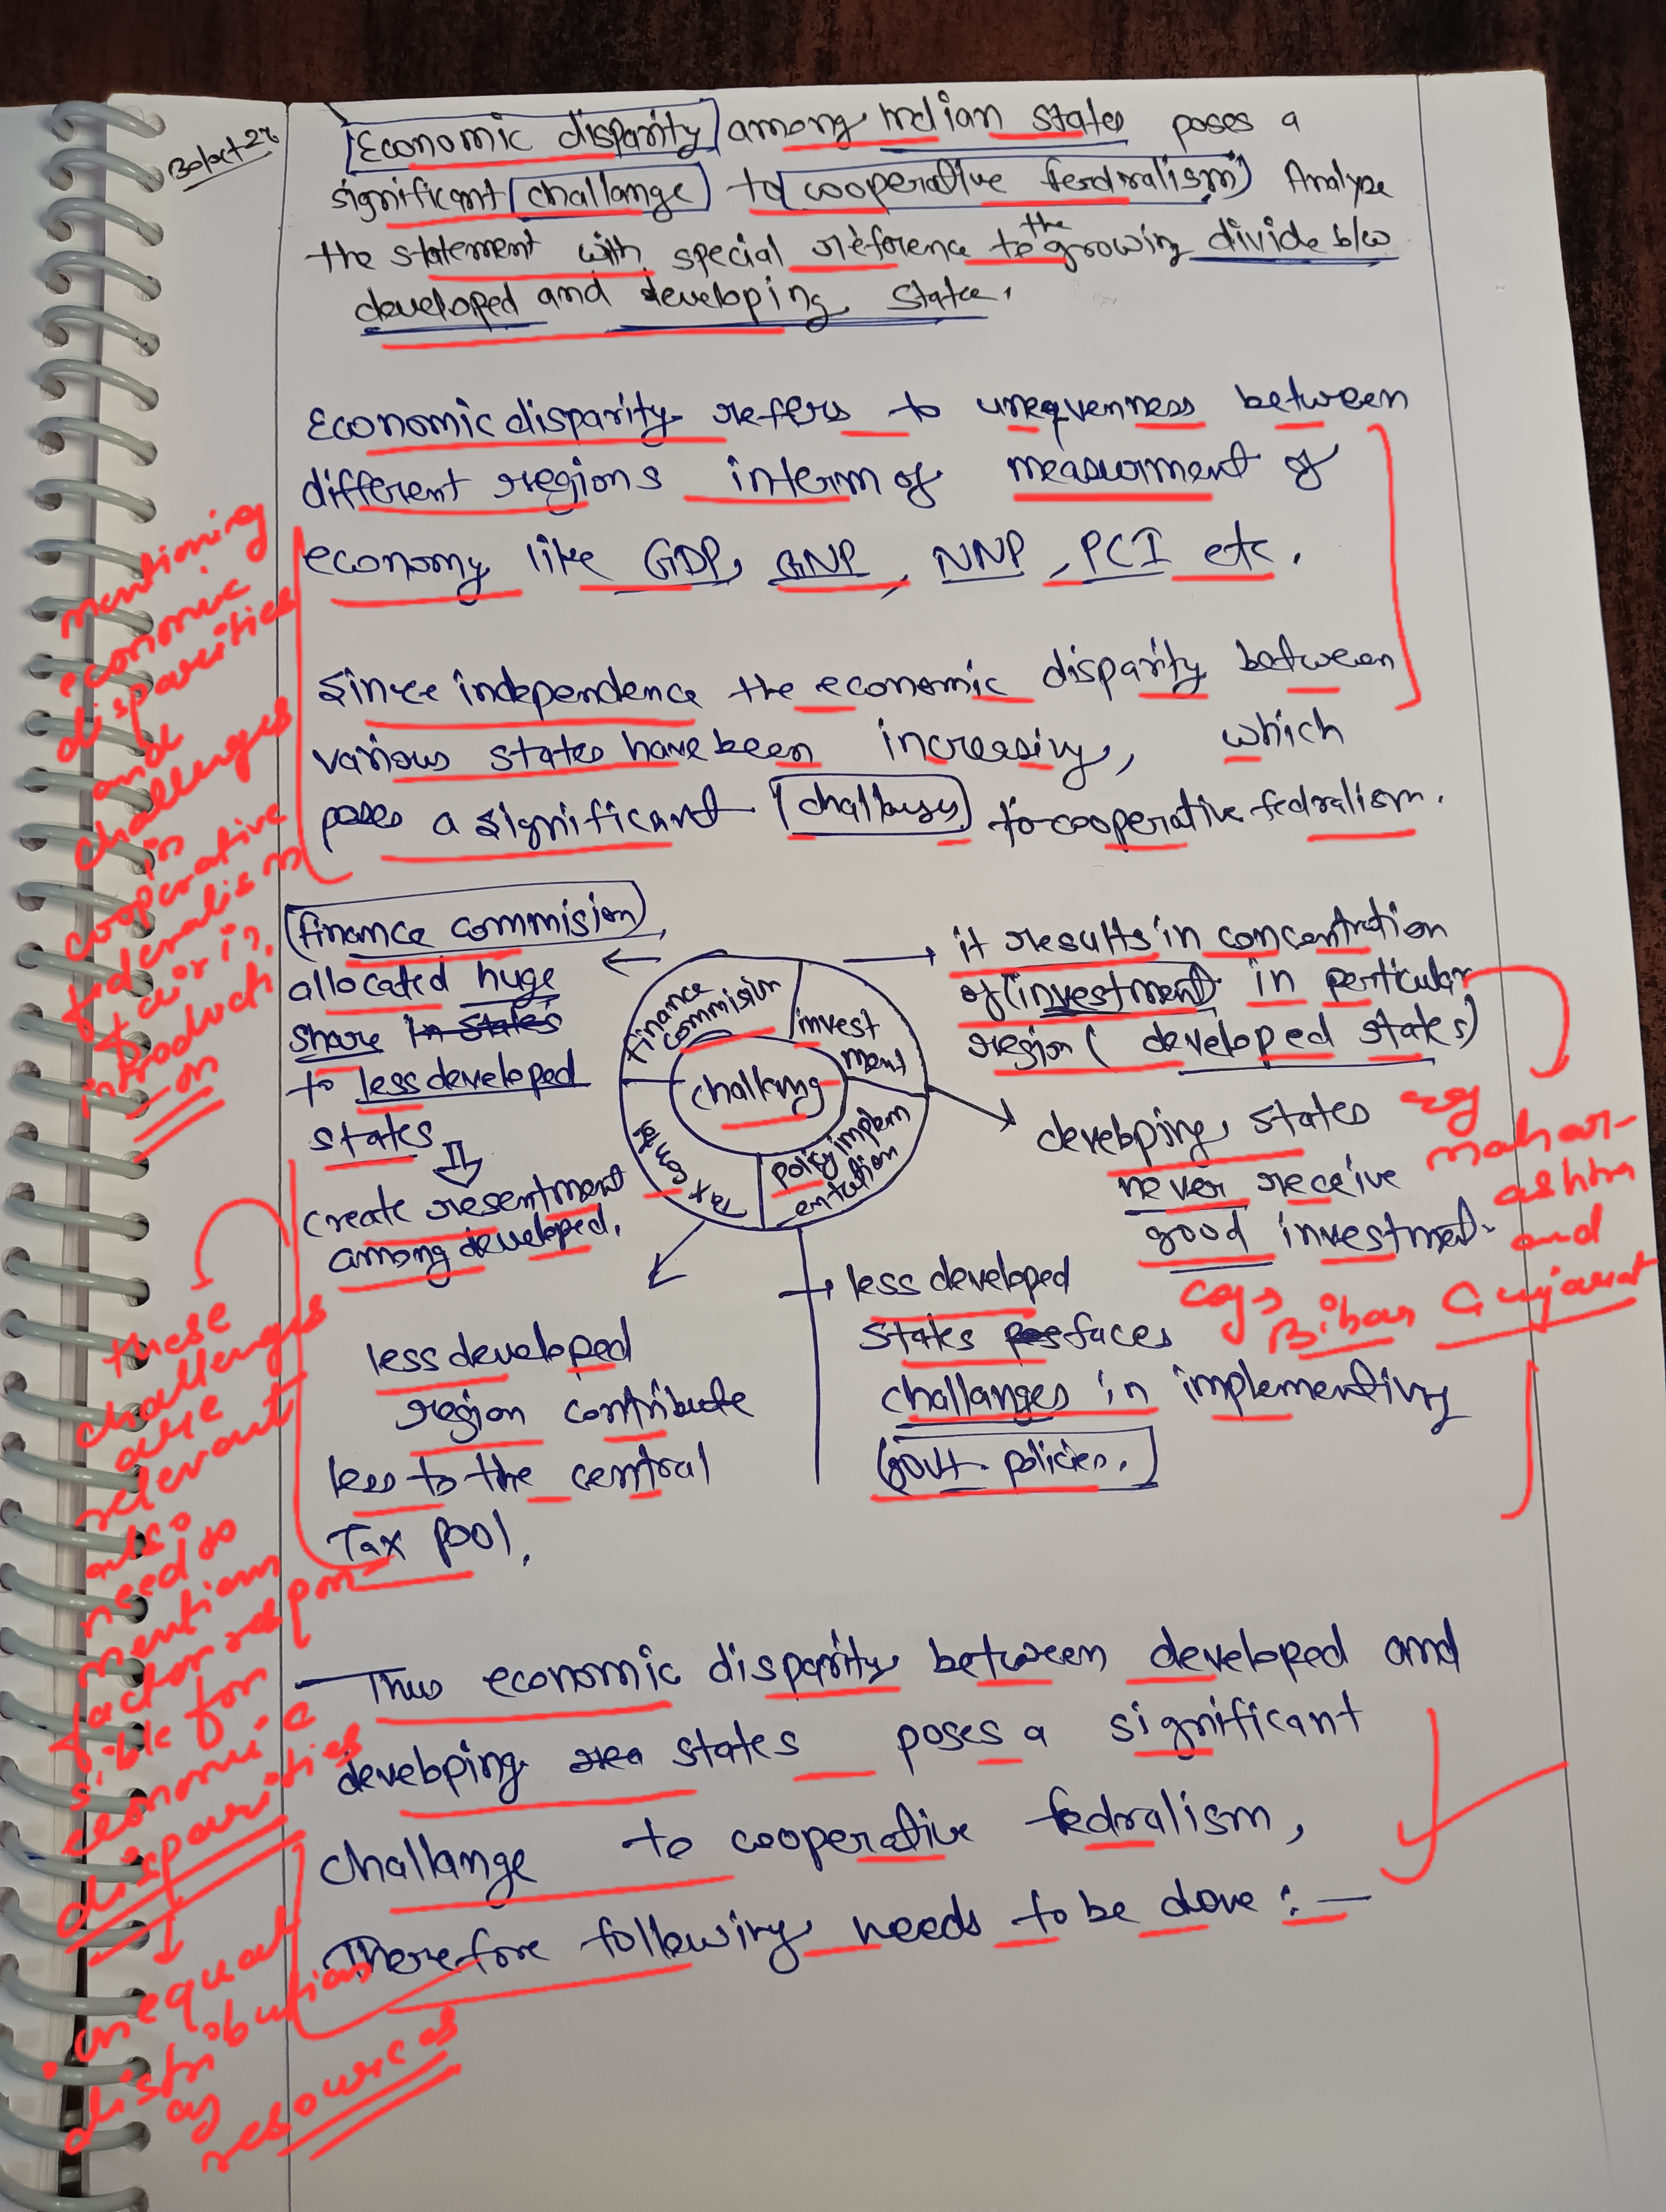 Economic disparity among Indian states poses a
significant challange to cooperative fedralism) Analyze
the statement with special reference to the growing divide b/w
developed and developing state.
Economic disparity refers to unequenness between
different regions interm of measurment of
economy like GDP, GNP, NNP, PCI etc.
Since independence the economic disparity between
various states have been increasing, which
poses a significant challenges to cooperative fedralism.
mentioning
economic
disparities
and
challenges
in
cooperative
federalism
fair in
introducti
on
finance commision
allocated huge
share in states
to less developed
states
create resentment
among developed.
finance
commision
invest
ment
policy implem
entation
challeng
it results in concentration
of (investment) in perticular
region (developed states)
eg
mahar-
ashtra
and
Gujarat
developing states
never receive
good investment.
eg→
Bihar
less developed
region contribute
less to the central
Tax pool.
less developed
states faces
challanges in implementing
Govt. policies.
these
challenges
are
relevant
also
need to
mention
factor respon
sible for
economic
disparities
unequal
distribution
of
resources
Thus economic disparity between developed and
developing states poses a significant
challange to cooperative fedralism,
Therefore following needs to be done :—